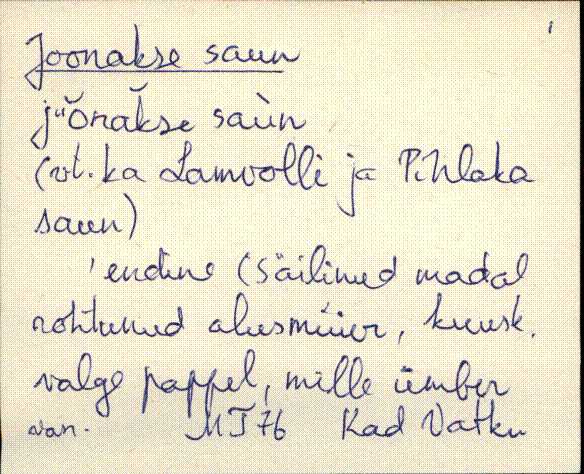 Joonakse saun
jüŏnăkse saùn
(vt. ka Lamvolli ja Pihlaka
saun)
'endine (säilinud madal
rohtunud alusmüür, kuusk,
valge pappel, mille ümber
van. MT 76 Kad Vatku